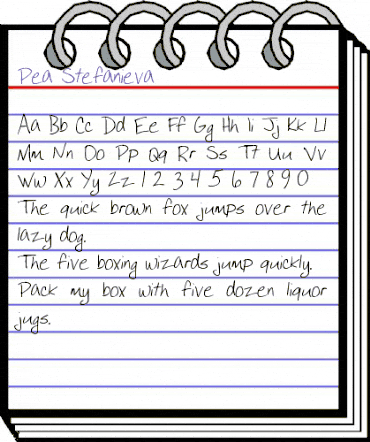 Pea Stefanieva
Aa Bb Cc Dd Ee Ff Gg Hh Ii Jj Kk Ll
Mm Nn Oo Pp Qq Rr Ss Tt Uu Vv
Ww Xx Yy Zz 1 2 3 4 5 6 7 8 9 0
The quick brown fox jumps over the
lazy dog.
The five boxing wizards jump quickly.
Pack my box with five dozen liquor
jugs.